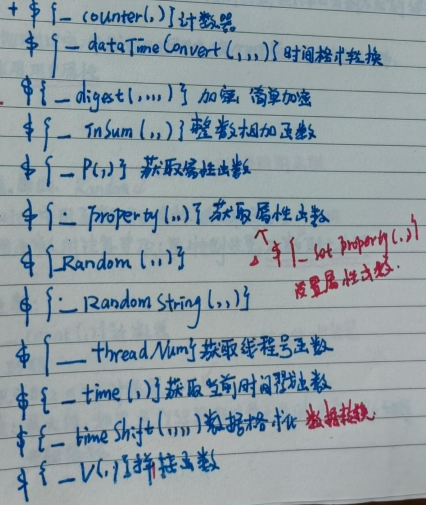 + $ {_ counter(,)} 计数器
$ {_ dataTimeConvert(,,,)} 时间格式转换
$ {_ digest(,,,,)} 加密 简单加密
$ {_ InSum(,,)} 整数相加函数
$ {_ P(,)} 获取属性函数
$ {_ Property(,,)} 获取属性函数
$ {_Random(,,)}
$ {_ set property(,,)}
设置属性函数.
$ {_ Random String(,,)}
$ {__ threadNum} 获取线程号函数
$ {_ time(,)} 获取当前时间戳函数
$ {_ time Shift(,,,,)} 数据格式化 数据转换
$ {_ V(,)} 拼接函数